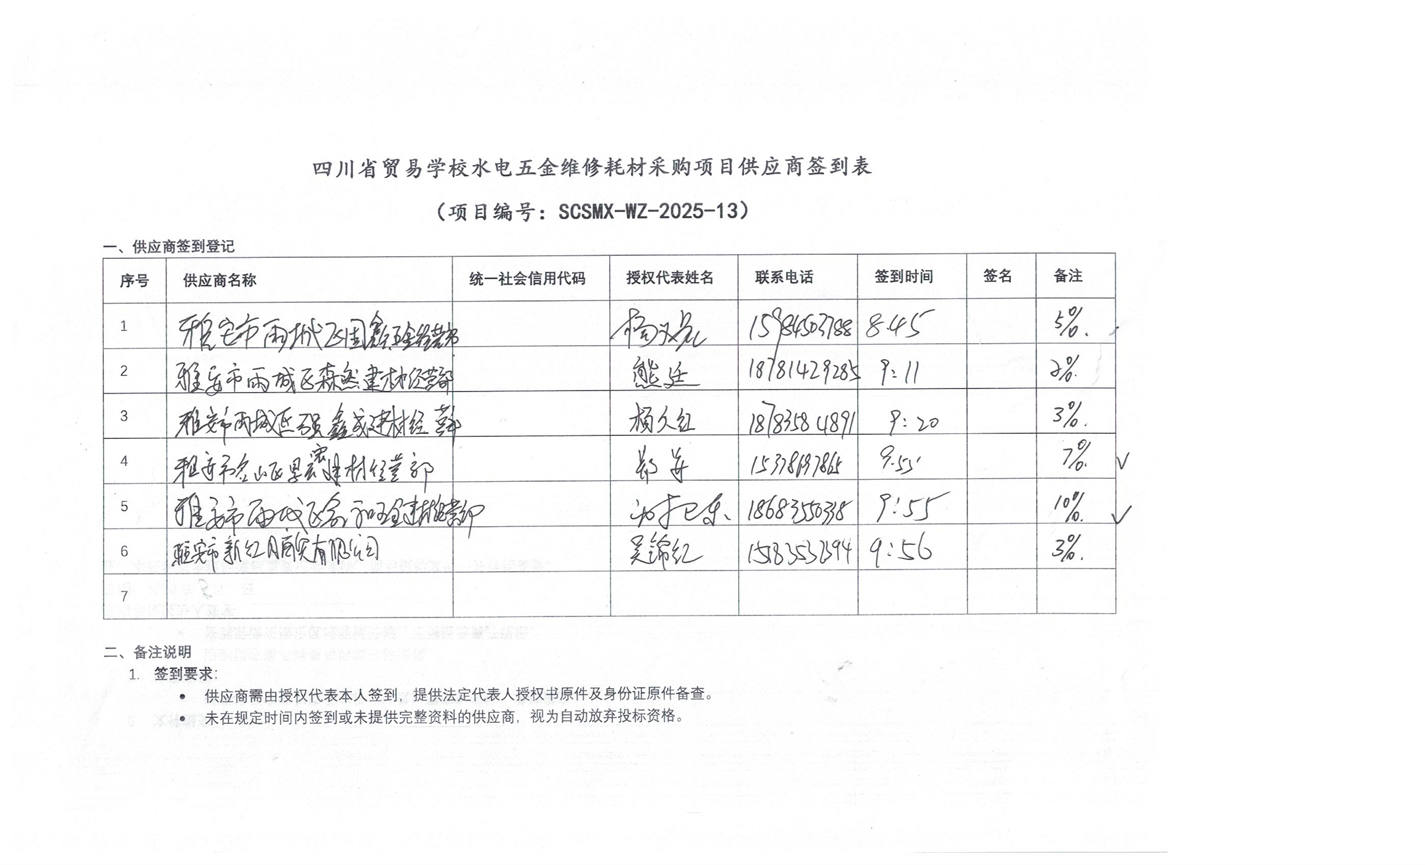 四川省贸易学校水电五金维修耗材采购项目供应商签到表
（项目编号：SCSMX-WZ-2025-13）
一、供应商签到登记
序号 供应商名称 统一社会信用代码 授权代表姓名 联系电话 签到时间 签名 备注
1 雅安市雨城区固鑫五金经营部 杨 8:45 5%.
2 雅安市雨城区森然建材经营部 熊廷 18781429285 9:11 2%.
3 雅安市雨城区硕鑫成建材经营部 杨久红 18783584891 9:20 3%.
4 雅安市名山区 建材经营部 郑 9:55 7%. ✓
5 雅安市雨城区 和五金建材经营部 18683550318 9:55 10%. ✓
6 雅安市新红月商贸有限公司 吴锦红 9:56 3%.
7
二、备注说明
1. 签到要求：
• 供应商需由授权代表本人签到，提供法定代表人授权书原件及身份证原件备查。
• 未在规定时间内签到或未提供完整资料的供应商，视为自动放弃投标资格。